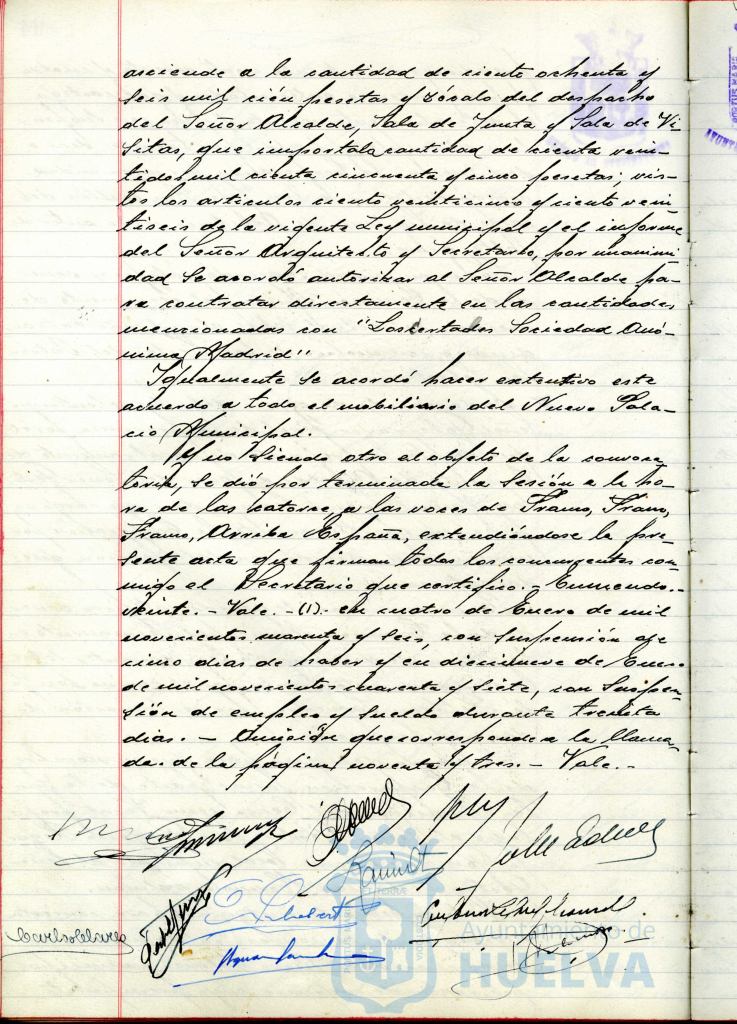 asciende a la cantidad de ciento ochenta y
seis mil cien pesetas y zócalo del despacho
del Señor Alcalde, Sala de Junta y Sala de Vi
sitas, que importa la cantidad de cienta vein-
tidos mil cienta cincuenta y cinco pesetas; vis-
tos los articulos ciento veinticinco y ciento vein
tiseis de la vigente Ley municipal y el informe
del Señor Arquitecto y Secretario, por unanimi
dad se acordó autorizar al Señor Alcalde pa-
ra contratar directamente en las cantidades
mencionadas con "Loscertales Sociedad Anó-
nima, Madrid"
Igualmente se acordó hacer extentivo este
acuerdo a todo el mobiliario del Nuevo Pala-
cio Municipal.
Y no siendo otro el objeto de la convoca
toria, se dió por terminada la sesión a la ho-
ra de las catorce, a las voces de Franco, Franco,
Franco, Arriba España, extendiéndose la pre
sente acta que firman todos los concurrentes con-
migo el Secretario que certifico.- Enmendo.-
veinte. - Vale. - (1).- en cuatro de Enero de mil
novecientos cuarenta y seis, con suspensión de
cinco dias de haber y en diecinueve de Enero
de mil novecientos cuarenta y siete, con suspen-
sión de empleo y sueldo durante treinta
dias. - Omisión que corresponde a la llama-
da. de la página noventa y tres. - Vale. -
Ayuntamiento de
HUELVA